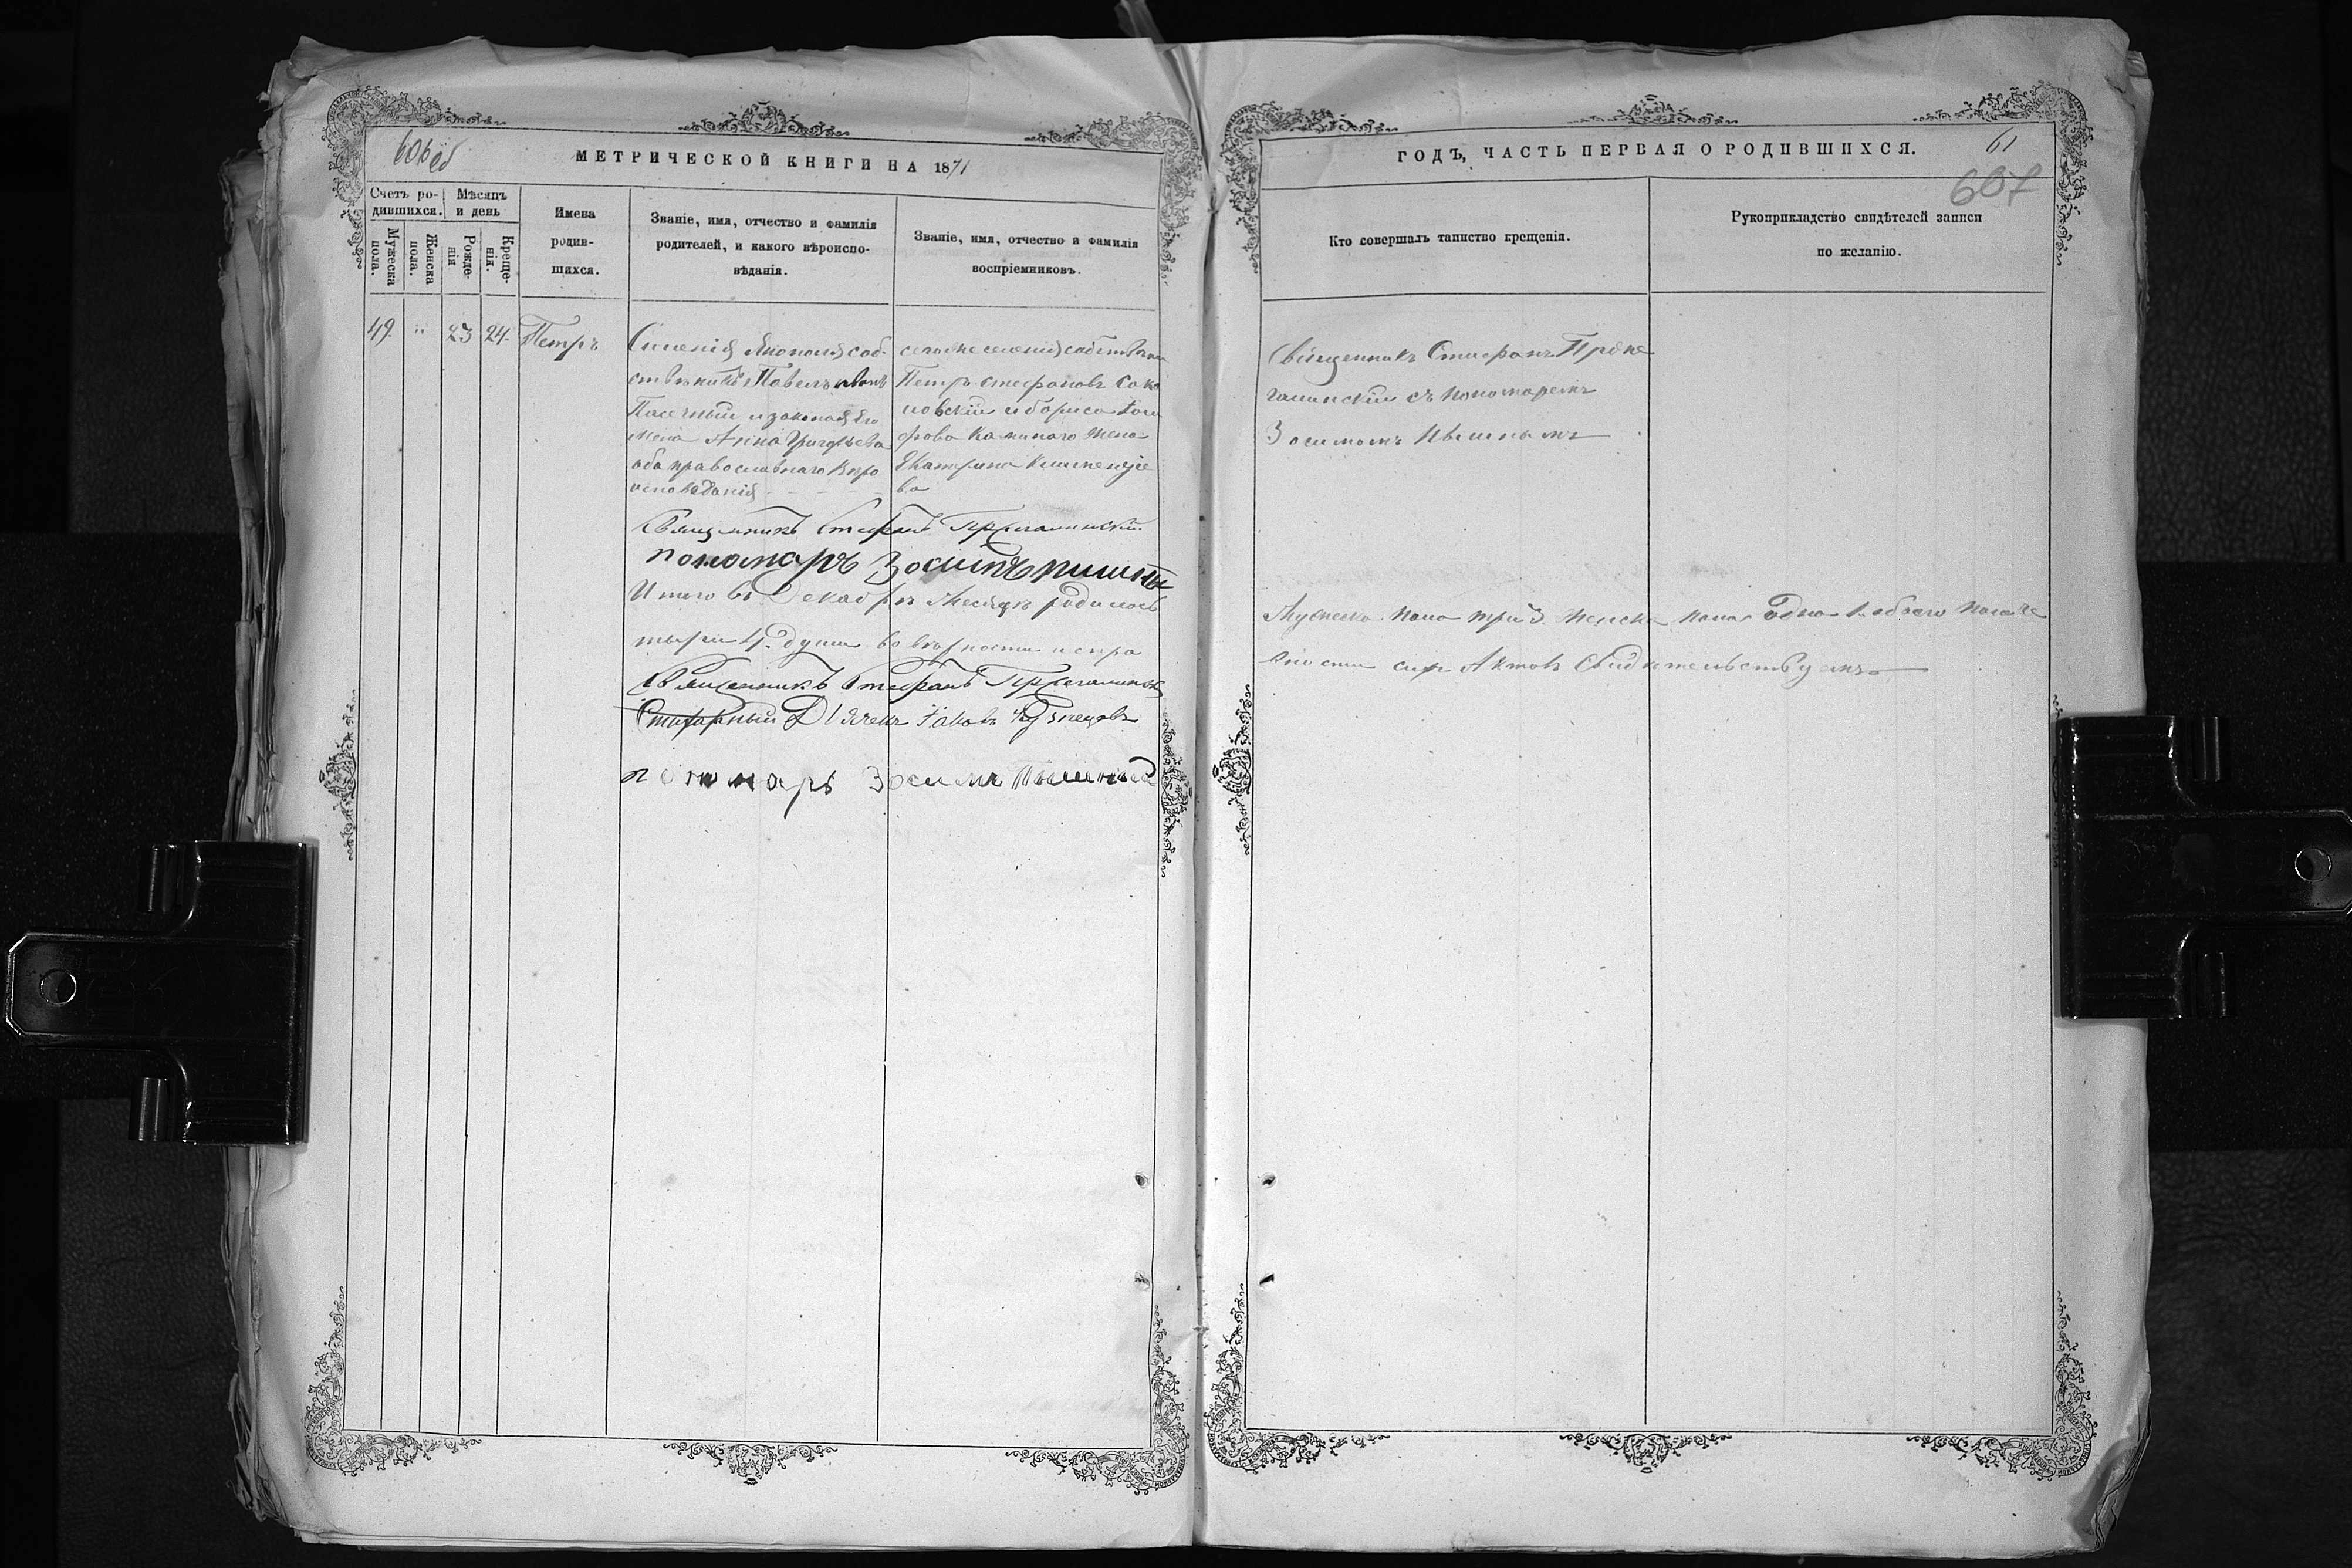 606об
МЕТРИЧЕСКОЙ КНИГИ НА 1871
Счетъ ро-
дившихся.
Мѣсяцъ
и день
Мужеска
пола.
Женска
пола.
Рожде-
нія
Креще-
нія.
Имена
родив-
шихся.
Званіе, имя, отчество и фамилія
родителей, и какого вѣроиспо-
вѣданія.
Званіе, имя, отчество и фамилія
воспріемниковъ.
49. " 23 24. Петръ
Селенія соб-
ственникъ Павелъ
Пасечный и законная его
жена Анна Григорьева
оба православнаго вѣро
исповѣданія
селенія собственникъ
Петръ Стефановъ Сако
повскій и Бориса
жена
Екатерина
ва
Священникъ Стефанъ
пономаръ Зосимъ
Итого въ Декабрѣ Месяцѣ родилось
тыри 4. души во вѣрности и спра
Священникъ Стефанъ
Стихарный Дьячекъ Іаковъ Кузнецовъ
пономарь Зосимъ Пышный
ГОДЪ, ЧАСТЬ ПЕРВАЯ О РОДИВШИХСЯ.
61
607
Кто совершалъ таинство крещенія.
Рукоприкладство свидѣтелей записи
по желанію.
Священникъ Стефанъ
съ пономаремъ
Зосимомъ Пышнымъ
Мужеска пола три 3. Женска пола одна 1. обоего пола че
сихъ Актовъ Свидѣтельствуемъ